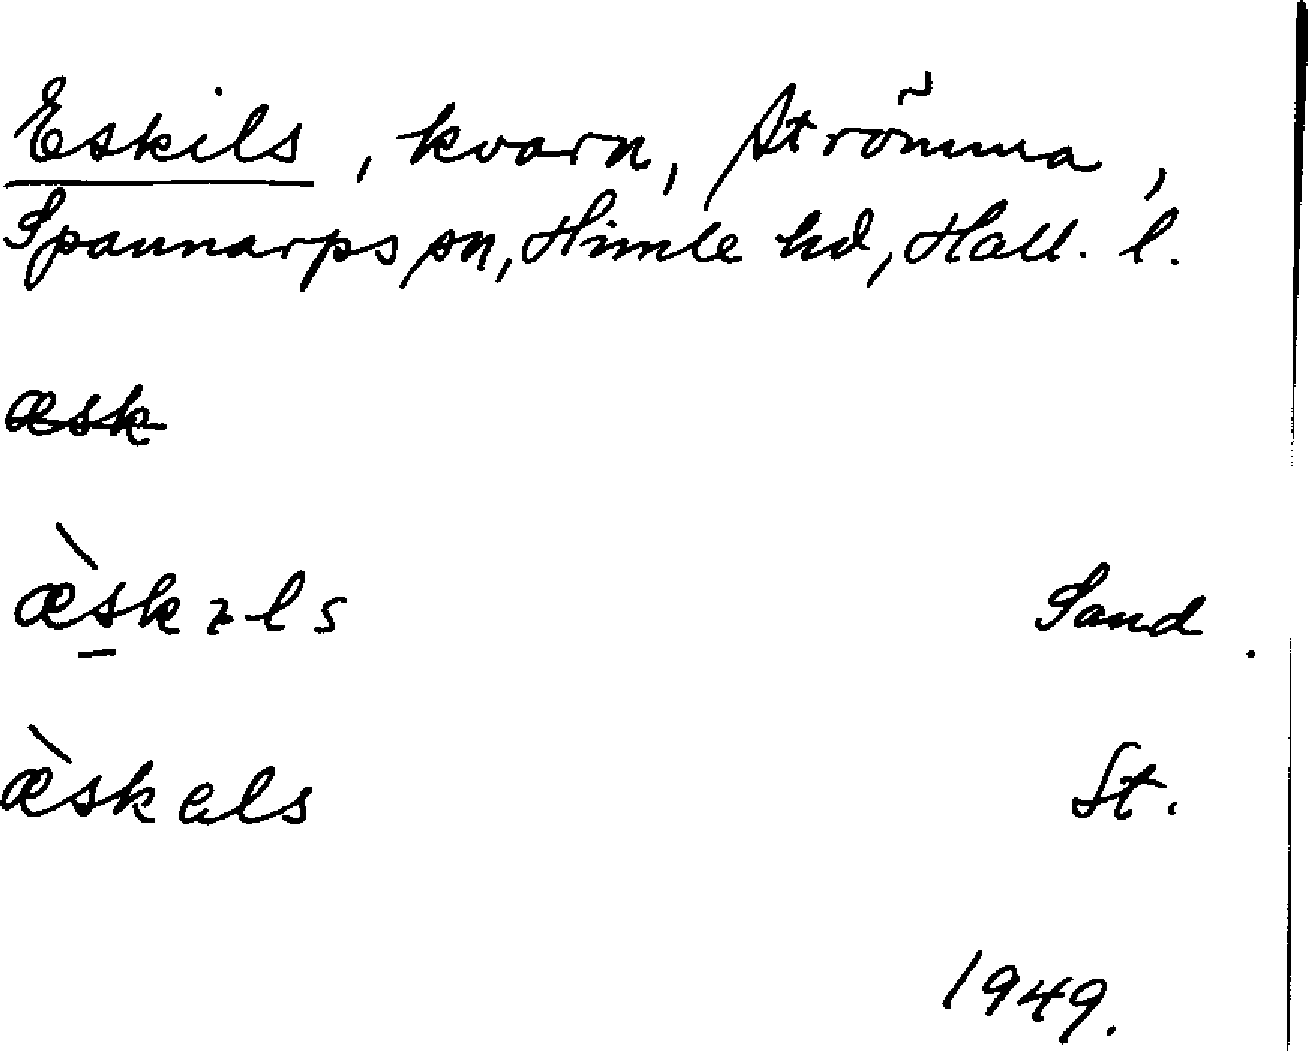 Eskils, kvarn, Strömma,
Spannarps sn, Himle hd, Hall. l.
æsk
æ̀skɿls Sand.
æ̀skəls St.
1949.